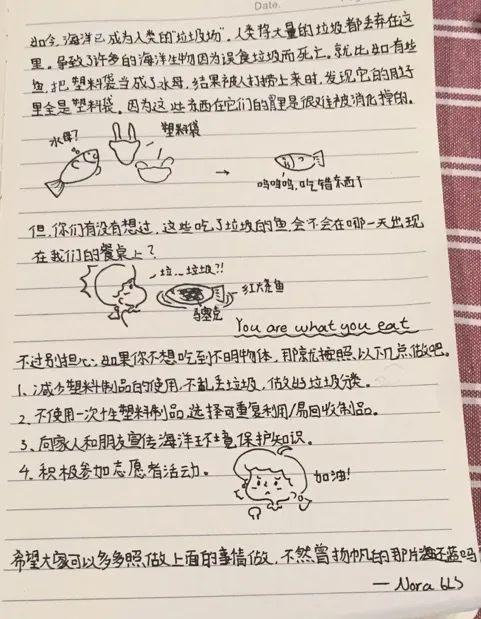 Date.
如今,海洋已成为人类的"垃圾场"。人类将大量的垃圾都丢弃在这
里。导致了许多的海洋生物因为误食垃圾而死亡。就比如有些
鱼,把塑料袋当成了水母,结果被人打捞上来时,发现它的肚子
里全是塑料袋。因为这些东西在它们的胃里是很难被消化掉的。
水母?
塑料袋
→
呜呜呜,吃错东西了
但,你们有没有想过,这些吃了垃圾的鱼,会不会在哪一天出现
在我们的餐桌上?
垃...垃圾?!
红烧鱼
马赛克
You are what you eat
不过别担心,如果你不想吃到不明物体,那就按照以下几点做吧。
1、减少塑料制品的使用,不乱丢垃圾,做好垃圾分类。
2、不使用一次性塑料制品,选择可重复利用/易回收制品。
3、向家人和朋友宣传海洋环境保护知识。
4、积极参加志愿者活动。
加油!
希望大家可以多多照做上面的事情做,不然曾扬帆的那片海还蓝吗
— Nora